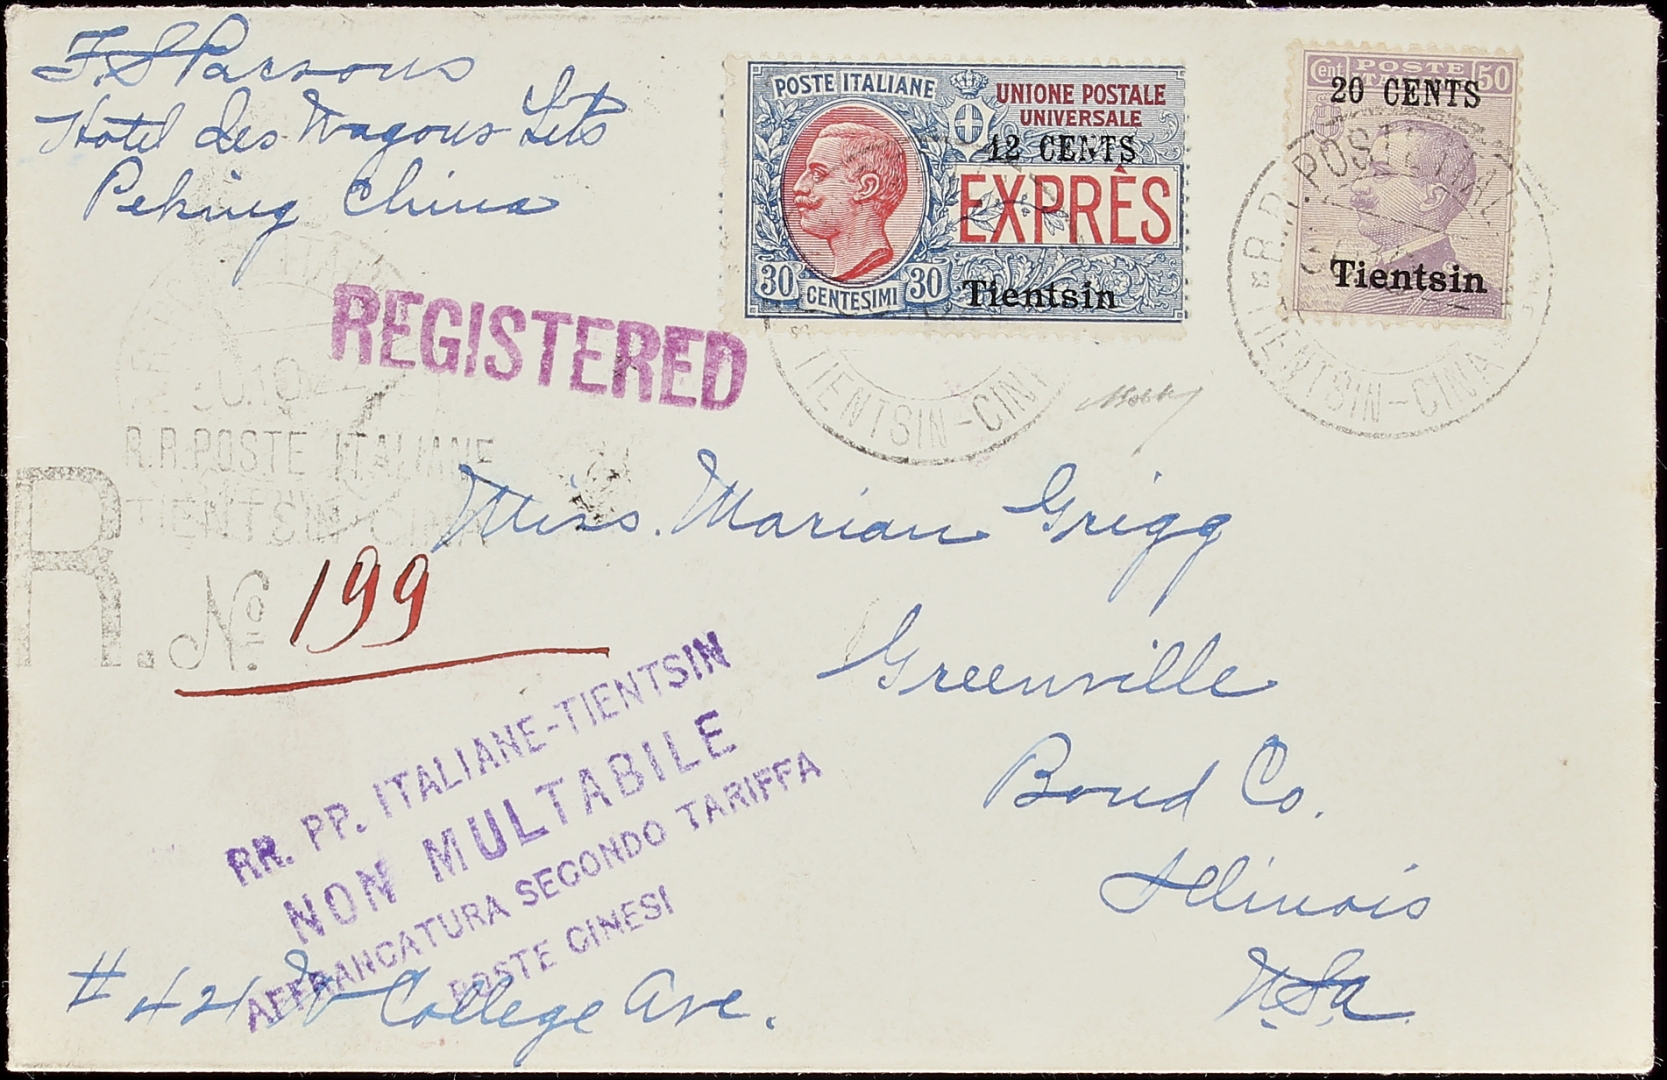 F. S Parsons
Hotel des Wagons Lits
Peking China
POSTE ITALIANE
UNIONE POSTALE
UNIVERSALE
12 CENTS
EXPRÊS
30 CENTESIMI 30
Tientsin
Cent POSTE ITALIANE 50
20 CENTS
Tientsin
R.R. POSTE ITALIANE
TIENTSIN-CINA
TIENTSIN-CINA
REGISTERED
R.R. POSTE ITALIANE
TIENTSIN CINA
R. No 199
Miss. Marian Grigg
Greenville
Bond Co.
Illinois
U.S.a.
RR. PP. ITALIANE-TIENTSIN
NON MULTABILE
AFFRANCATURA SECONDO TARIFFA
POSTE CINESI
# 421 W College Ave.